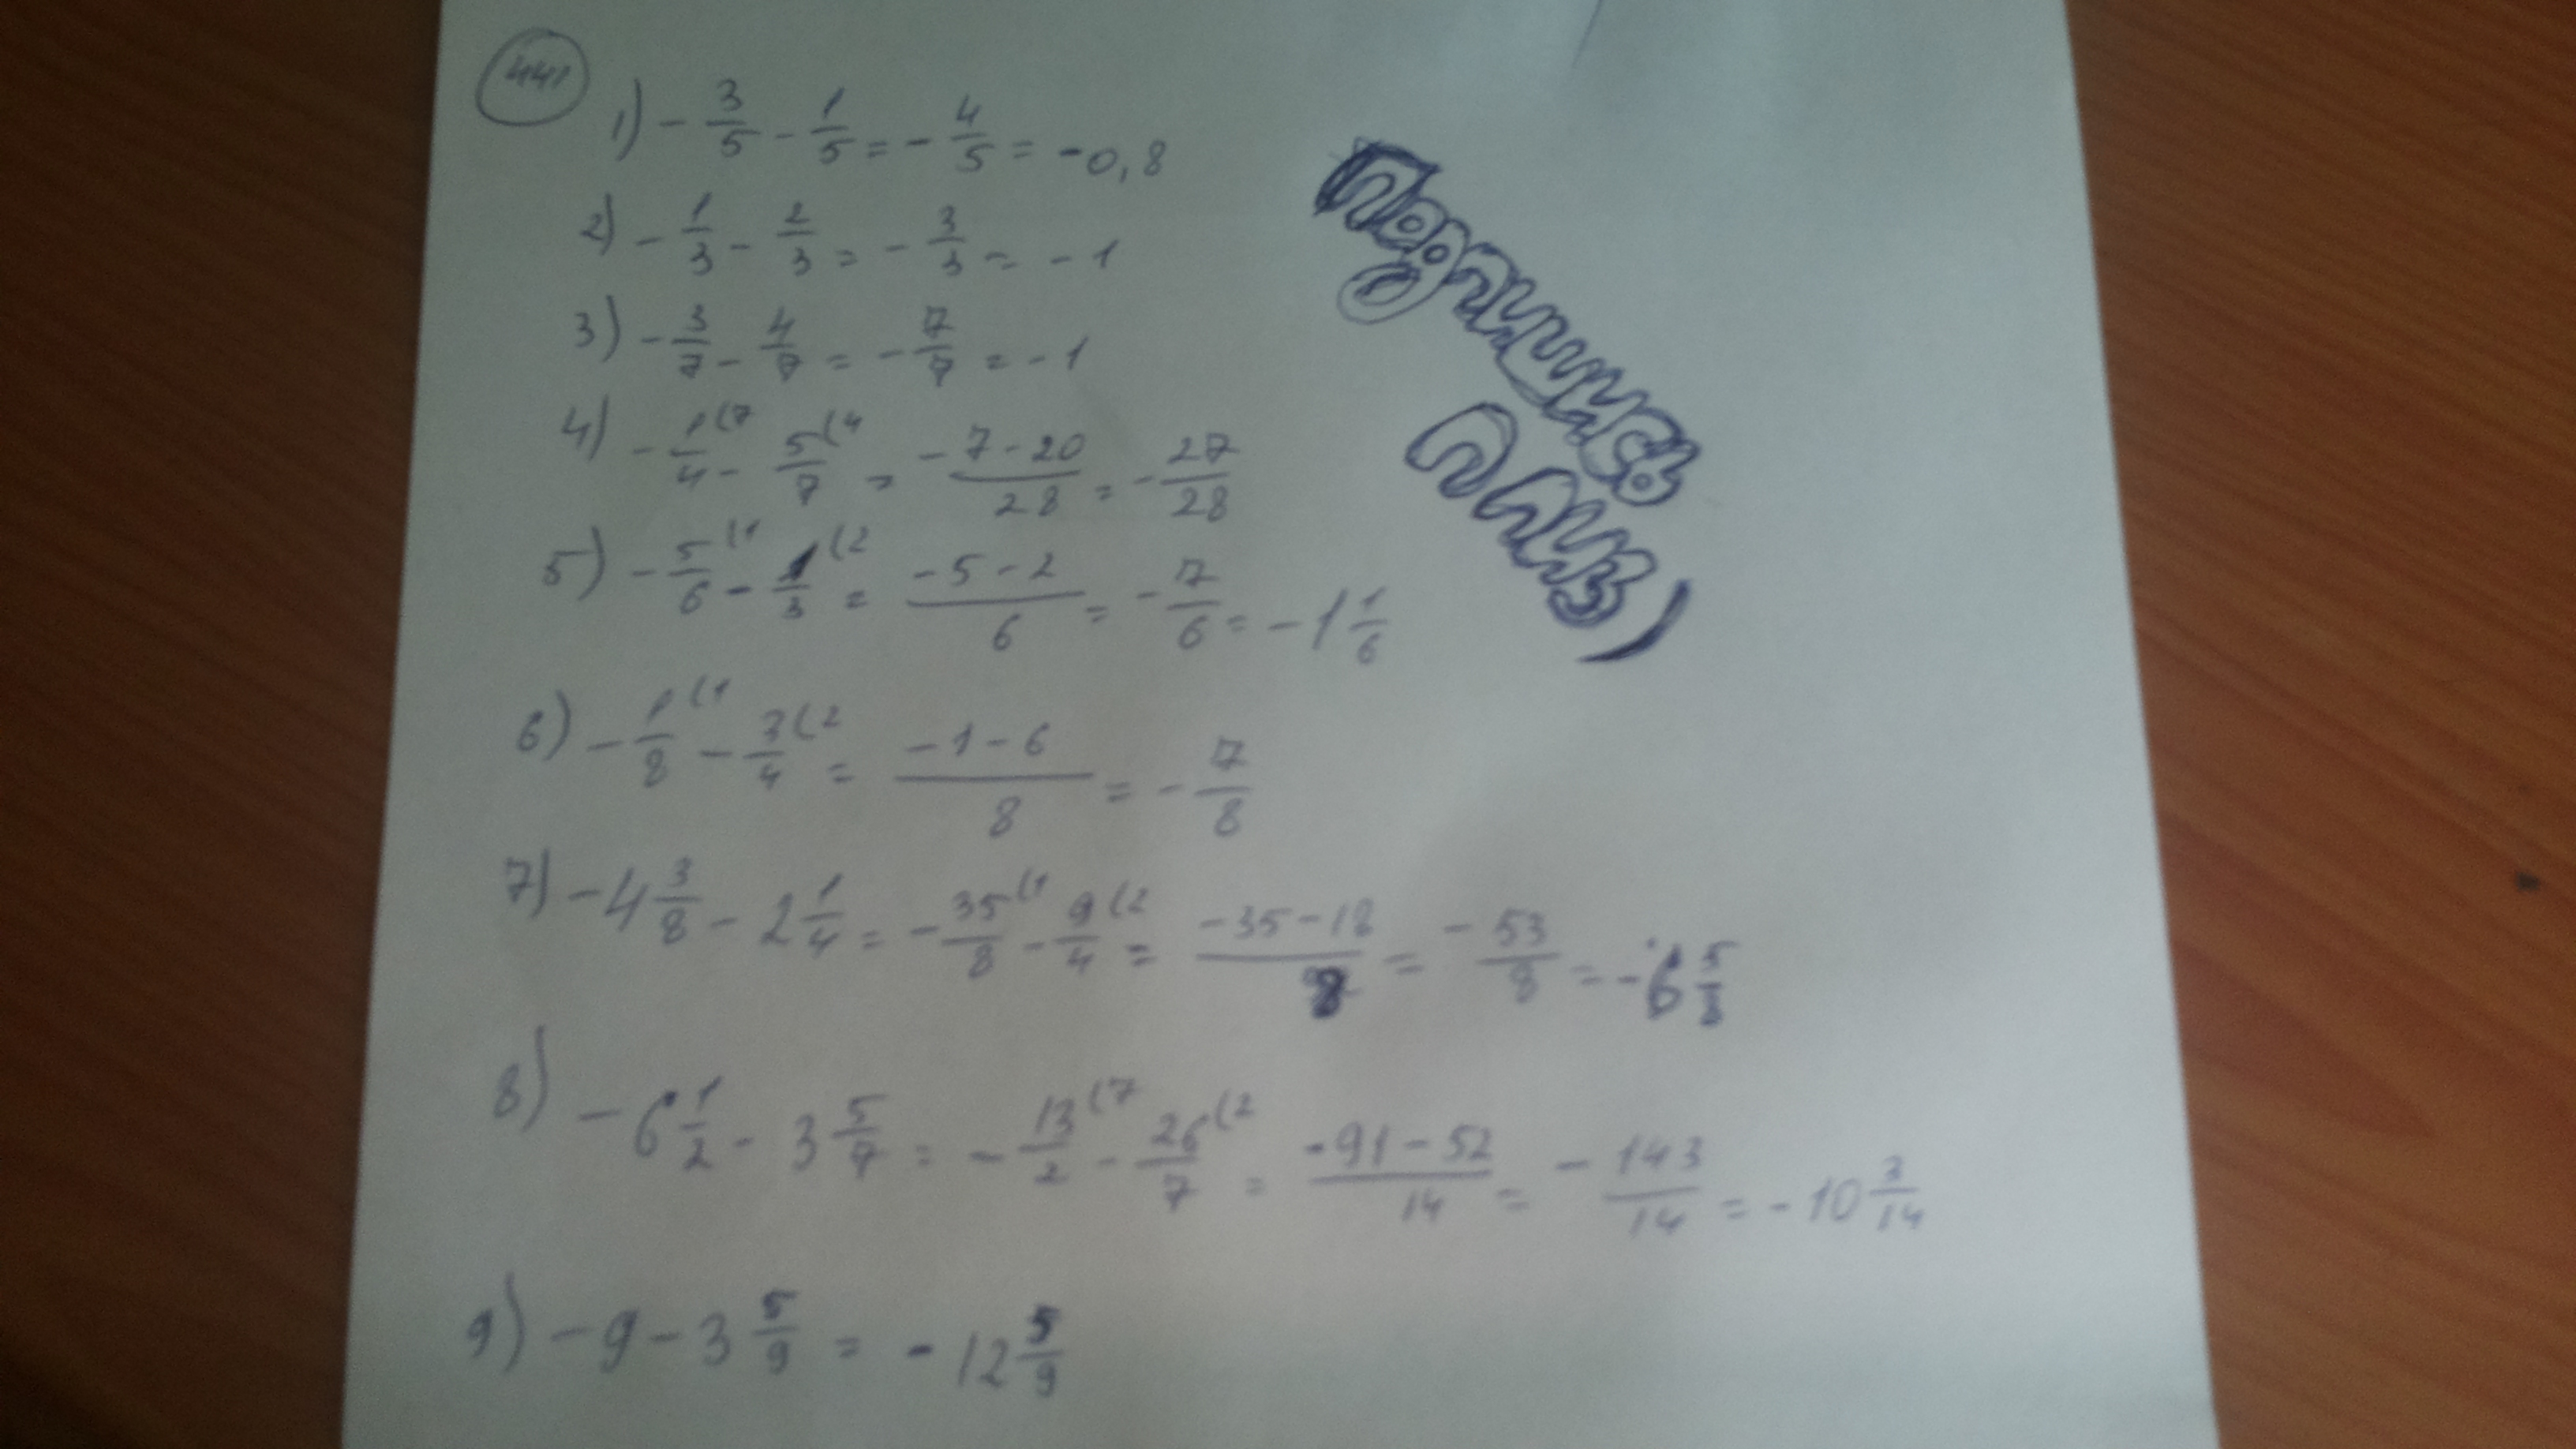 441
1) - 3/5 - 1/5 = - 4/5 = -0,8
2) - 1/3 - 2/3 = - 3/3 = - 1
3) - 3/7 - 4/7 = - 7/7 = - 1
4) - 1/4 (7 - 5/7 (4 = - 7 - 20/28 = - 27/28
5) - 5/6 (1 - 1/3 (2 = - 5 - 2/6 = - 7/6 = - 1 1/6
6) - 1/8 (1 - 3/4 (2 = - 1 - 6/8 = - 7/8
7) - 4 3/8 - 2 1/4 = - 35/8 (1 - 9/4 (2 = - 35 - 18/8 = - 53/8 = - 6 5/8
8) - 6 1/2 - 3 5/7 = - 13/2 (7 - 26/7 (2 = - 91 - 52/14 = - 143/14 = - 10 3/14
9) - 9 - 3 5/9 = - 12 5/9